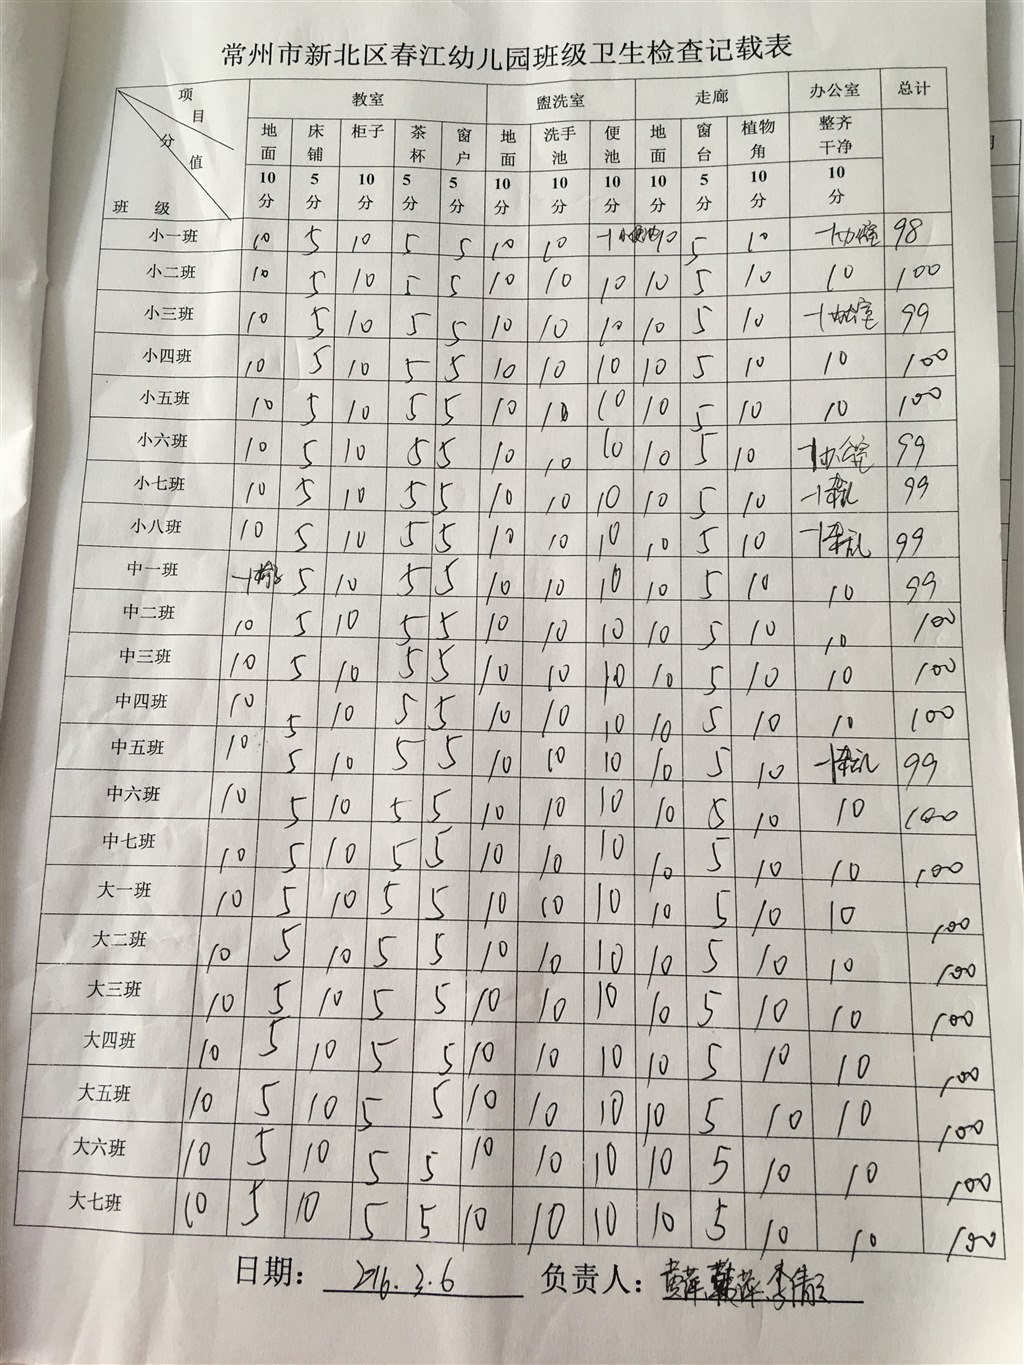 常州市新北区春江幼儿园班级卫生检查记载表
项目 分值 班级 教室 盥洗室 走廊 办公室 总计
地面 床铺 柜子 茶杯 窗户 地面 洗手池 便池 地面 窗台 植物角 整齐干净
10分 5分 10分 5分 5分 10分 10分 10分 10分 5分 10分 10分
小一班 10 5 10 5 5 10 10 -1 10 5 10 -1办公室 98
小二班 10 5 10 5 5 10 10 10 10 5 10 10 100
小三班 10 5 10 5 5 10 10 10 10 5 10 -1办公室 99
小四班 10 5 10 5 5 10 10 10 10 5 10 10 100
小五班 10 5 10 5 5 10 10 10 10 5 10 10 100
小六班 10 5 10 5 5 10 10 10 10 5 10 -1办公室 99
小七班 10 5 10 5 5 10 10 10 10 5 10 -1杂乱 99
小八班 10 5 10 5 5 10 10 10 10 5 10 -1杂乱 99
中一班 -1 5 10 5 5 10 10 10 10 5 10 10 99
中二班 10 5 10 5 5 10 10 10 10 5 10 10 100
中三班 10 5 10 5 5 10 10 10 10 5 10 10 100
中四班 10 5 10 5 5 10 10 10 10 5 10 10 100
中五班 10 5 10 5 5 10 10 10 10 5 10 -1杂乱 99
中六班 10 5 10 5 5 10 10 10 10 5 10 10 100
中七班 10 5 10 5 5 10 10 10 10 5 10 10 100
大一班 10 5 10 5 5 10 10 10 10 5 10 10 100
大二班 10 5 10 5 5 10 10 10 10 5 10 10 100
大三班 10 5 10 5 5 10 10 10 10 5 10 10 100
大四班 10 5 10 5 5 10 10 10 10 5 10 10 100
大五班 10 5 10 5 5 10 10 10 10 5 10 10 100
大六班 10 5 10 5 5 10 10 10 10 5 10 10 100
大七班 10 5 10 5 5 10 10 10 10 5 10 10 100
日期： 2016.3.6 负责人：